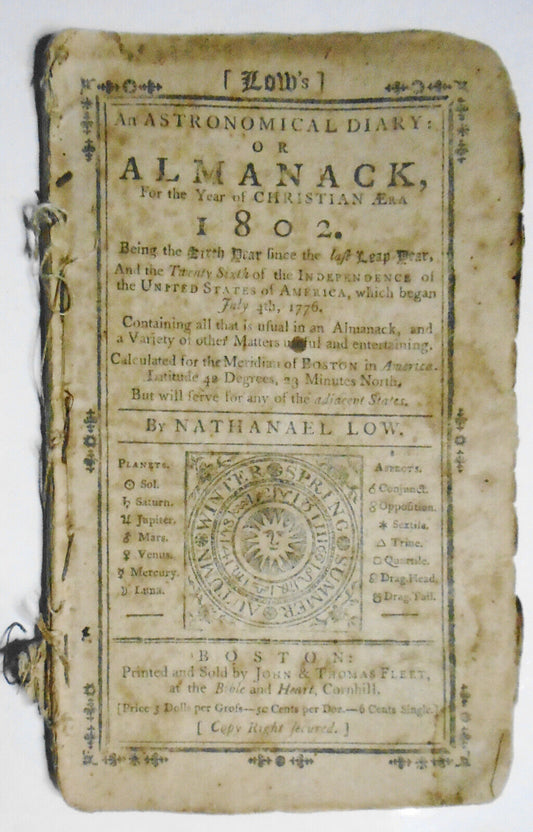 [ Low's ]
An ASTRONOMICAL DIARY:
OR
ALMANACK,
For the Year of CHRISTIAN ÆRA
1802.
Being the Sixth Year ſince the laſt Leap Year,
And the Twenty Sixth of the INDEPENDENCE of
the UNITED STATES of AMERICA, which began
July 4th, 1776.
Containing all that is uſual in an Almanack, and
a Variety of other Matters uſeful and entertaining.
Calculated for the Meridian of BOSTON in America.
Latitude 42 Degrees, 23 Minutes North,
But will ſerve for any of the adjacent States.
By NATHANAEL LOW.
PLANETS.
☉ Sol.
♄ Saturn.
♃ Jupiter.
♂ Mars.
♀ Venus.
☿ Mercury.
☽ Luna.
WINTER SPRING SUMMER AUTUMN
ASPECTS.
☌ Conjunct.
☍ Oppoſition.
✶ Sextile.
△ Trine.
□ Quartile.
☊ Drag. Head.
☋ Drag. Tail.
BOSTON:
Printed and Sold by JOHN & THOMAS FLEET,
at the Bible and Heart, Cornhill.
[Price 5 Dolls per Groſs—50 Cents per Doz.—6 Cents Single.]
[ Copy Right ſecured. ]